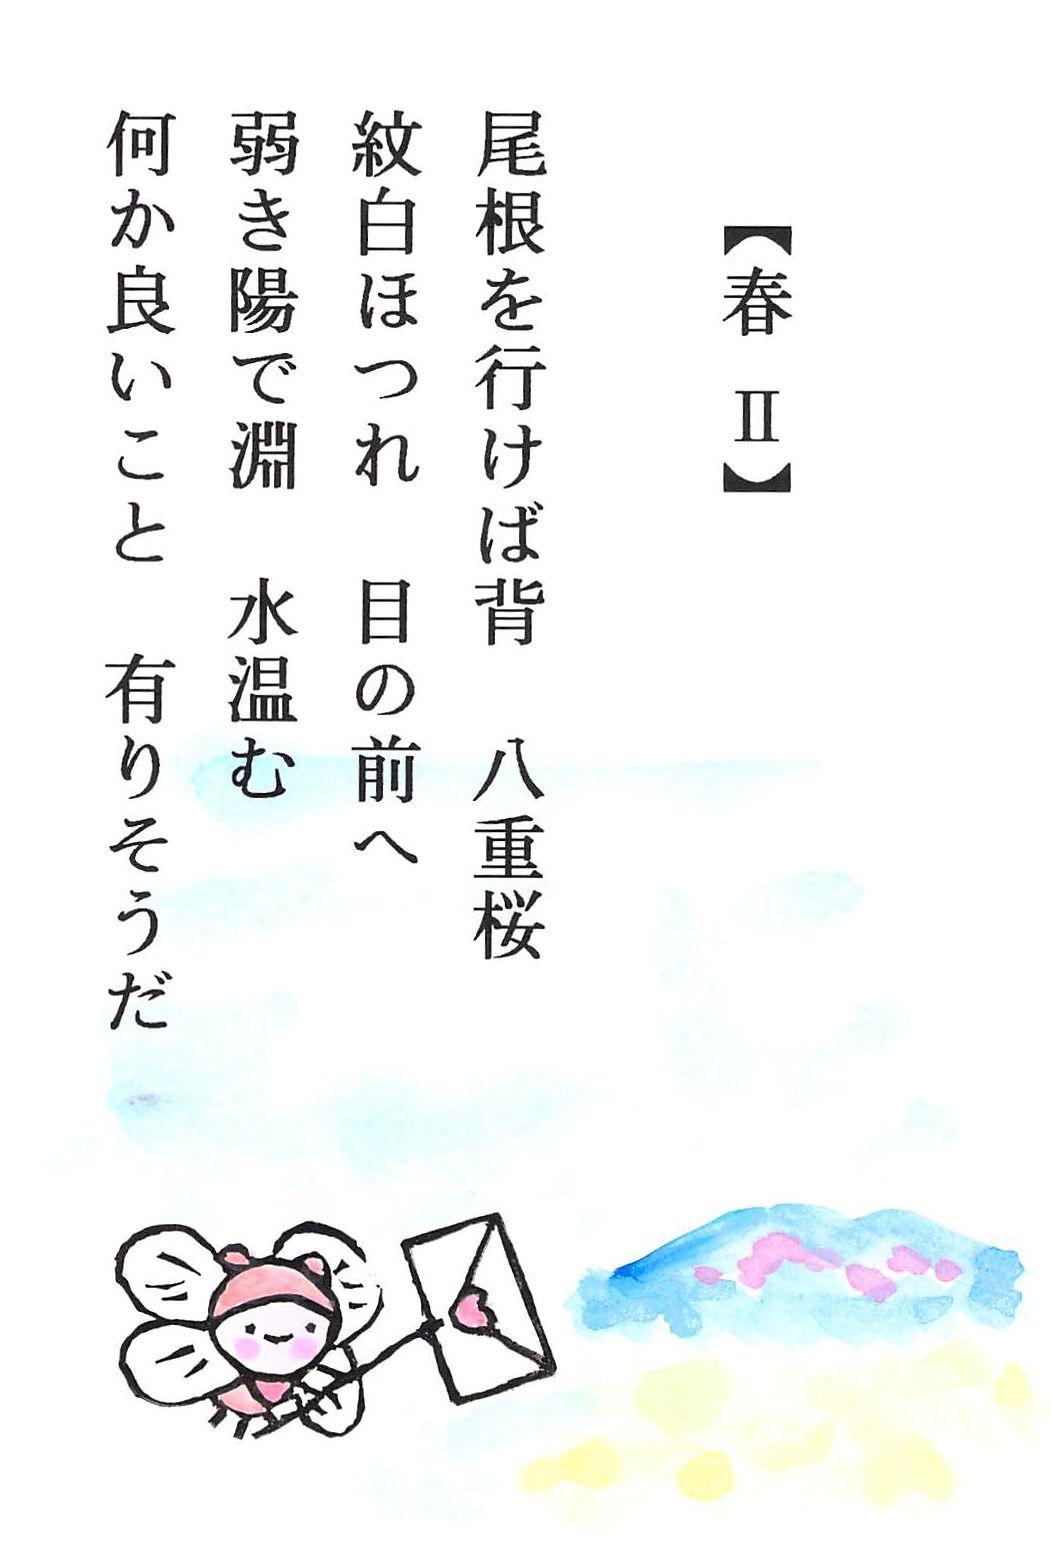 【春　Ⅱ】
尾根を行けば背　八重桜
紋白ほつれ　目の前へ
弱き陽で淵　水温む
何か良いこと　有りそうだ